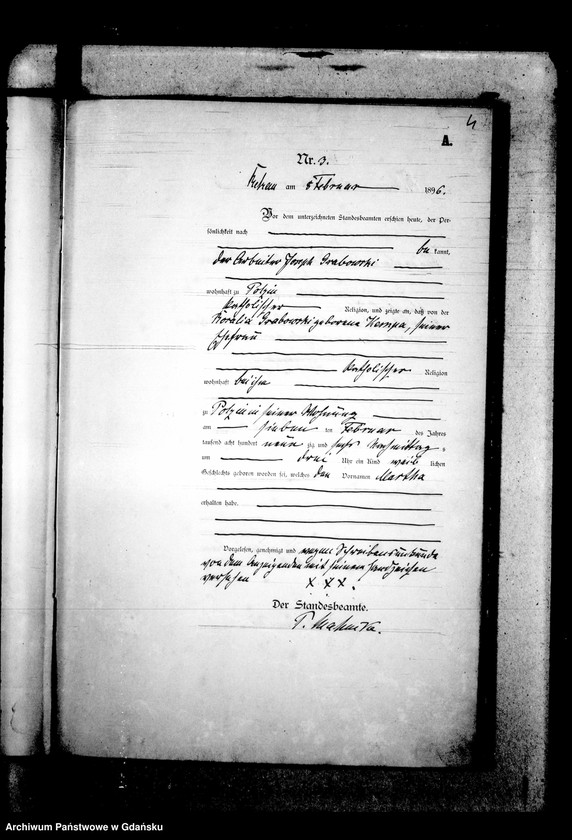 4
A.
Nr. 3.
am 8 Februar 1896.
Vor dem unterzeichneten Standesbeamten erschien heute, der Per-
sönlichkeit nach
be kannt,
der Arbeiter Joseph Grabowski
wohnhaft zu Polzin
katholischer Religion, und zeigte an, daß von der
Rosalia Grabowski geborene Kempa, seiner
Ehefrau
katholischer Religion
wohnhaft bei ihm
zu Polzin in seiner Wohnung
am sieben ten Februar des Jahres
tausend acht hundert neun zig und sechs Nachmittag s
um drei Uhr ein Kind weib lichen
Geschlechts geboren worden sei, welches den Vornamen Martha
erhalten habe.
Vorgelesen, genehmigt und wegen Schreibensunkunde
von dem Anzeigenden mit seinem Handzeichen
versehen X X X.
Der Standesbeamte.
Archiwum Państwowe w Gdańsku